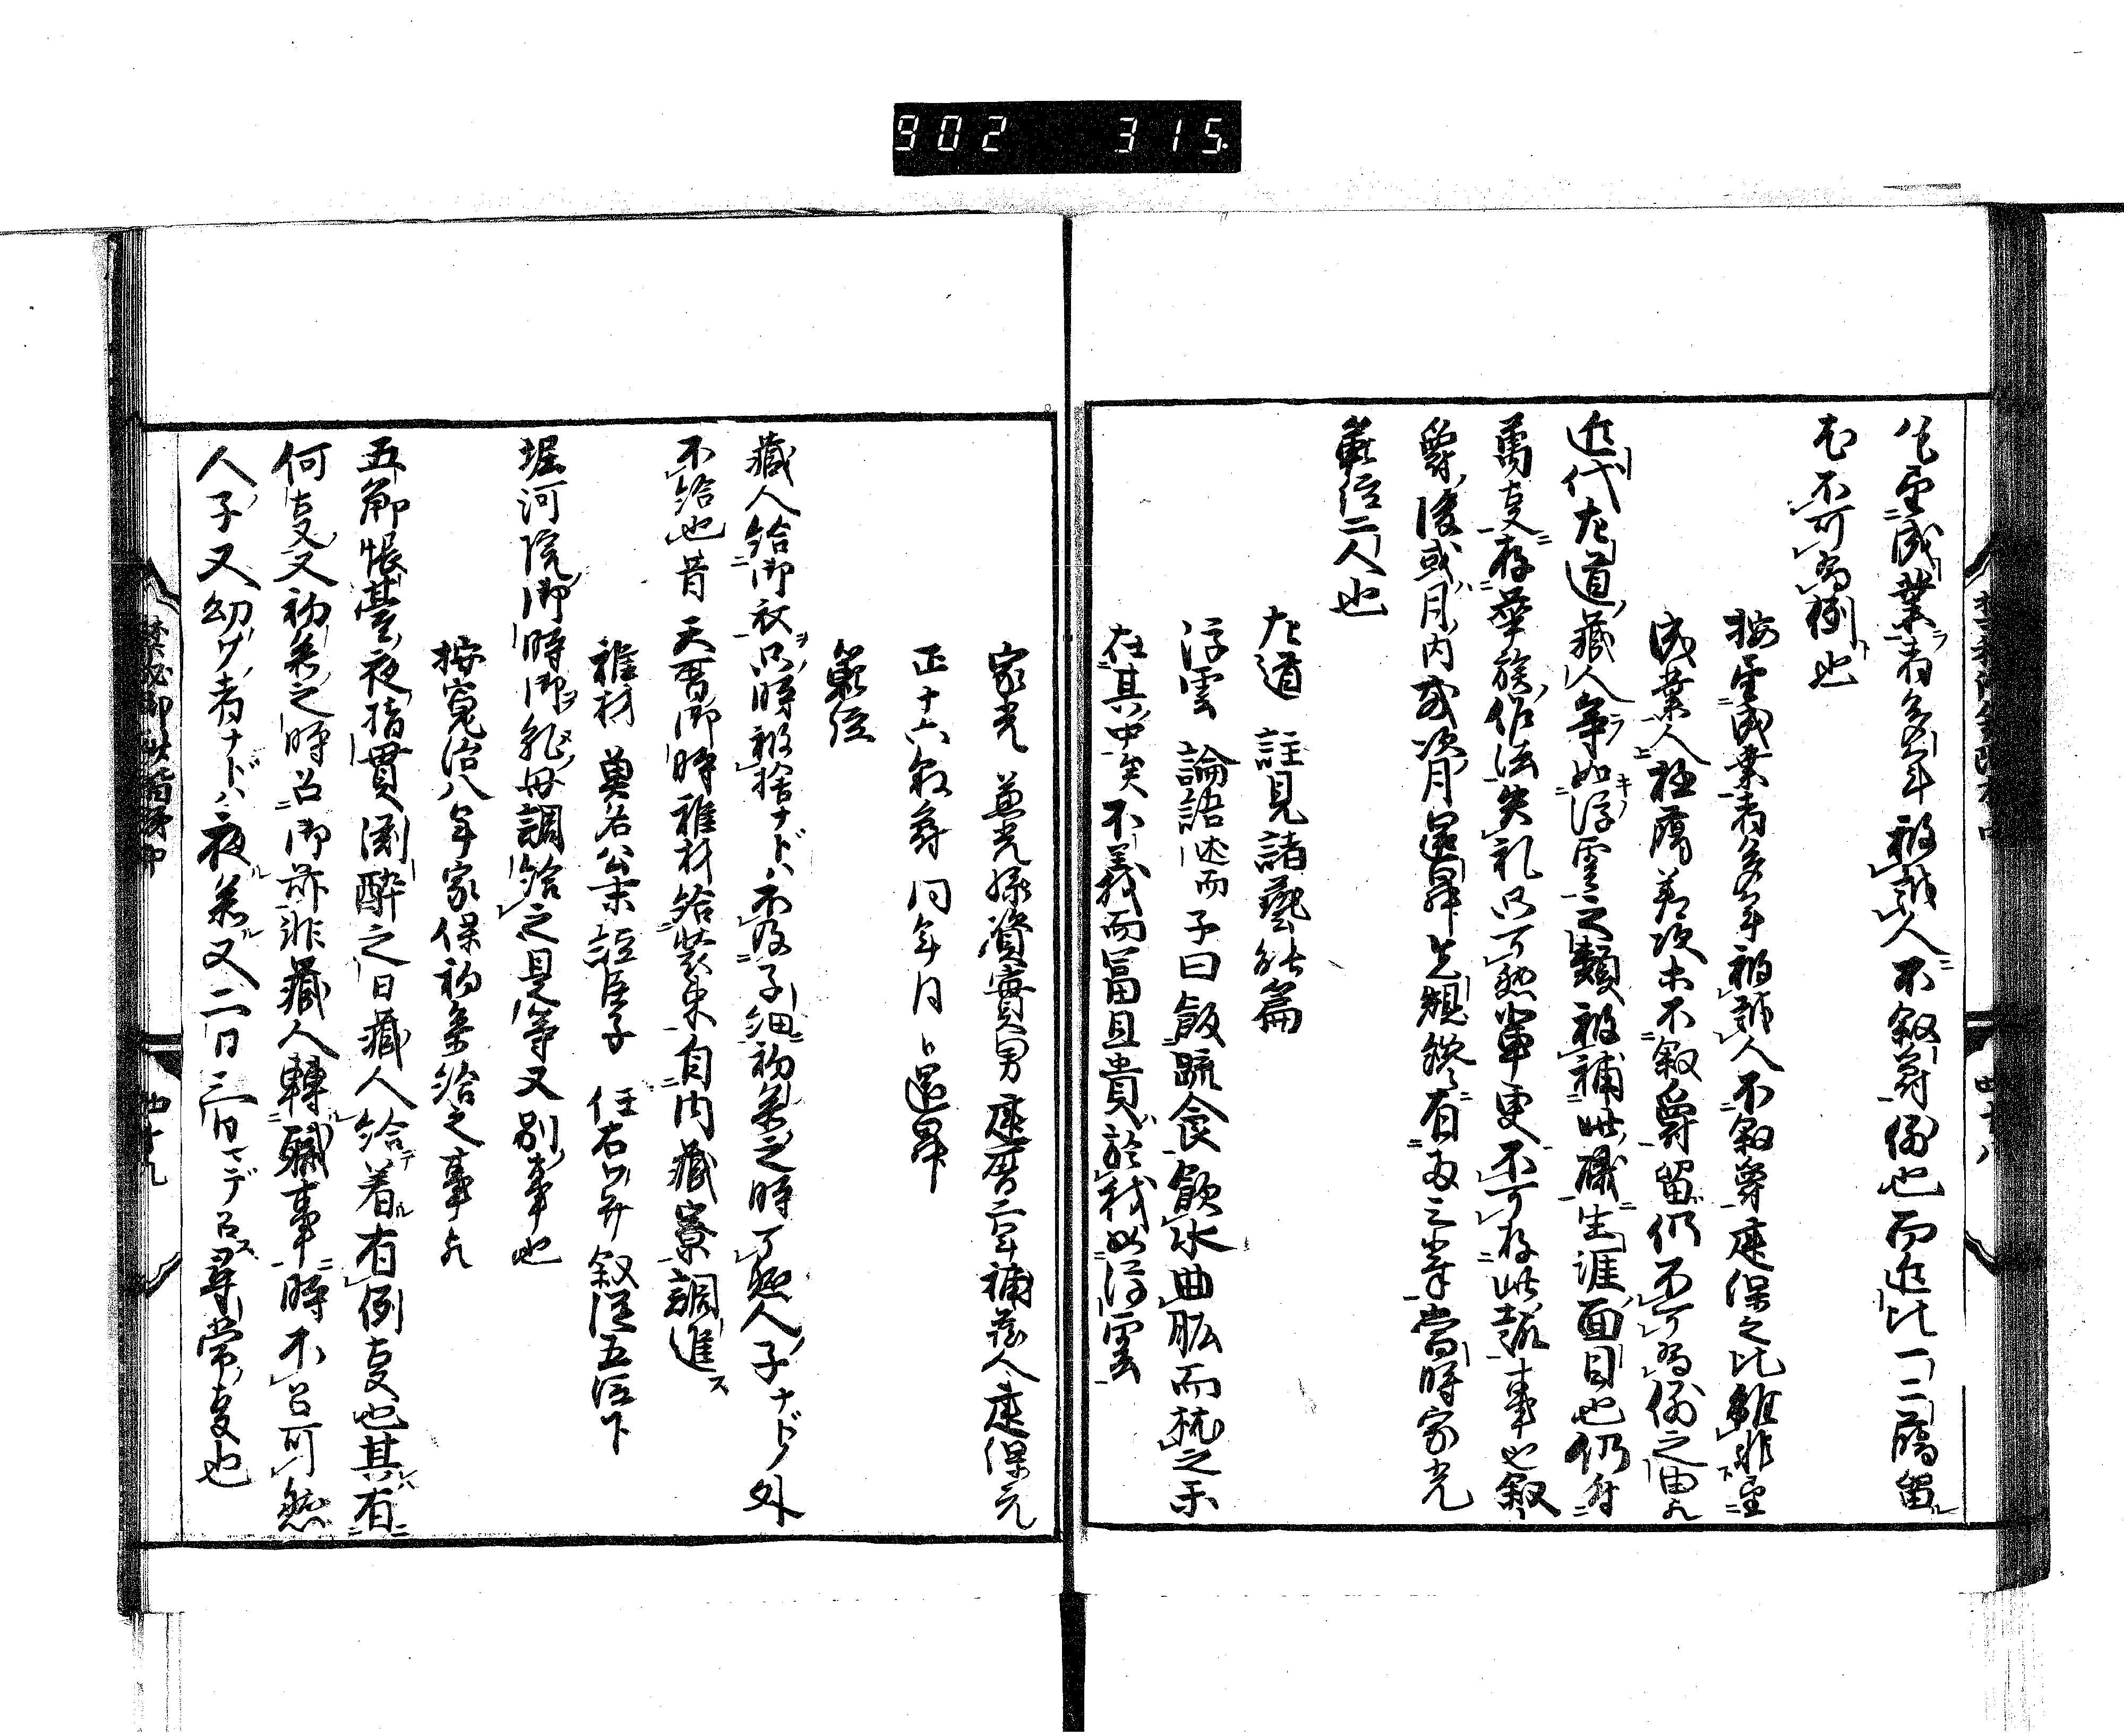 902 315
凡至成業者多年被越人不叙爵例也而近比一二﨟留
尤不可為例也
按至成業者多年被越人不叙爵建保之比雖非至
成業人極﨟差次等不叙爵留仍不可為例之由也
近代左道藏人等如浮雲之類被補此職生涯面目也仍每
萬事存華族作法失礼只可然輩更不可存此疏事也叙
爵後或月内或次月還昇先規纔有両三輩當時家光
範経二人也
左道 註見諸藝能篇
浮雲 論語述而子曰飯蔬食飲水曲肱而枕之樂
在其中矣不義而富且貴於我如浮雲
家光 兼光孫資實男建暦二年補蔵人建保元
正十六叙爵同年月日還昇
範経
藏人給御衣只時被捨ナドハ不及子細初参之時可然人子ナドノ外
不給也昔天暦御時雅材給裝束自内藏寮調進ス
雅材 魚名公末経臣子 任右少弁叙従五位下
堀河院御時御乳母調給之是等又別事也
按寛治八年家保初参給之事也
五節帳臺夜指貫淵酔之日藏人給着有例事也其有
何事又初参之時召御前非藏人轉職事時不召可然
人子又幼ケ者ナドハ夜参又二日三日マデ召尋常事也
禁秘御
四十八
四十九